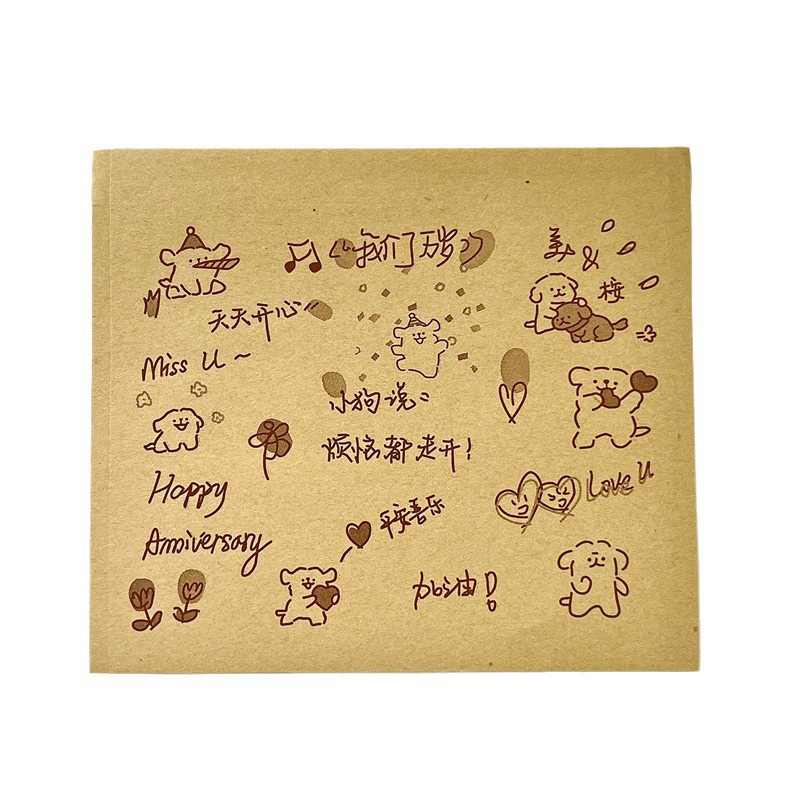 我们万岁
美 &
桉
天天开心
Miss U ~
小狗说:
烦恼都走开!
Happy
Anniversary
Love U
平安喜乐
加油!